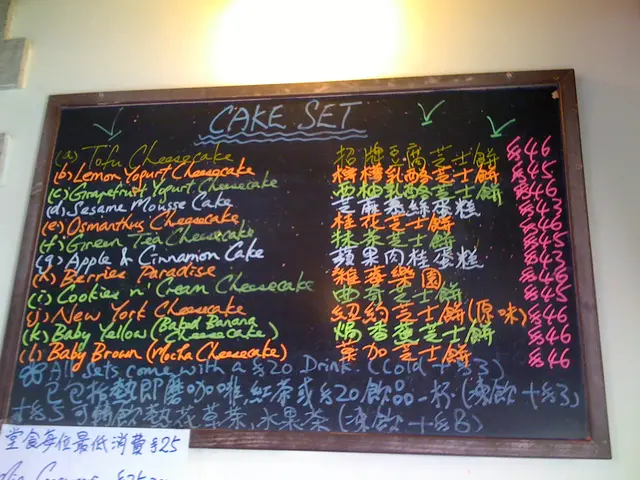 CAKE SET
(a) Tofu Cheesecake 招牌豆腐芝士餅 $46
(b) Lemon Yogurt Cheesecake 檸檬乳酪芝士餅 $45
(c) Grapefruit Yogurt Cheesecake 西柚乳酪芝士餅 $46
(d) Sesame Mousse Cake 芝麻慕絲蛋糕 $43
(e) Osmanthus Cheesecake 桂花芝士餅 $46
(f) Green Tea Cheesecake 抹茶芝士餅 $45
(g) Apple & Cinnamon Cake 蘋果肉桂蛋糕 $43
(h) Berries Paradise 雜莓樂園 $46
(i) Cookies n' Cream Cheesecake 曲奇芝士餅 $45
(j) New York Cheesecake 紐約芝士餅(原味) $46
(k) Baby Yellow (Baked Banana Cheesecake) 焗香蕉芝士餅 $46
(l) Baby Brown (Mocha Cheesecake) 芝士餅 $46
All Sets come with a $20 Drink. (Cold +$3)
已包括熱即磨咖啡,紅茶或$20飲品一杯(凍飲+$3)
+$5可轉飲熱花草茶,水果茶(凍飲+$8)
堂食每位最低消費$25